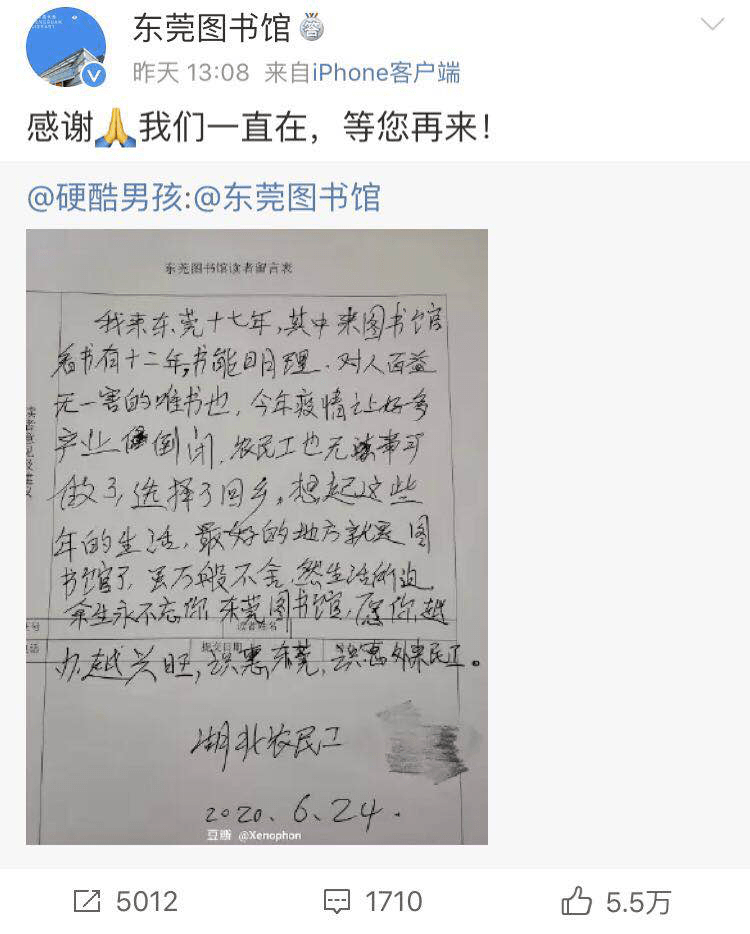 东莞图书馆
昨天 13:08 来自iPhone客户端
感谢🙏我们一直在，等您再来！
@硬酷男孩:@东莞图书馆
东莞图书馆读者留言表
读者意见及建议
我来东莞十七年,其中来图书馆
看书有十二年,书能明理.对人百益
无一害的唯书也,今年疫情让好多
产业倒闭,农民工也无事可
做了,选择了回乡。想起这些
年的生活,最好的地方就是图
书馆了.虽万般不舍,然生活所迫,
余生永不忘你,东莞图书馆,愿你越
号
读者姓名
办越兴旺,识惠东莞,识惠外来民工。
话
提交日期
湖北农民工
2020.6.24.
豆瓣 @Xenophon
5012
1710
5.5万